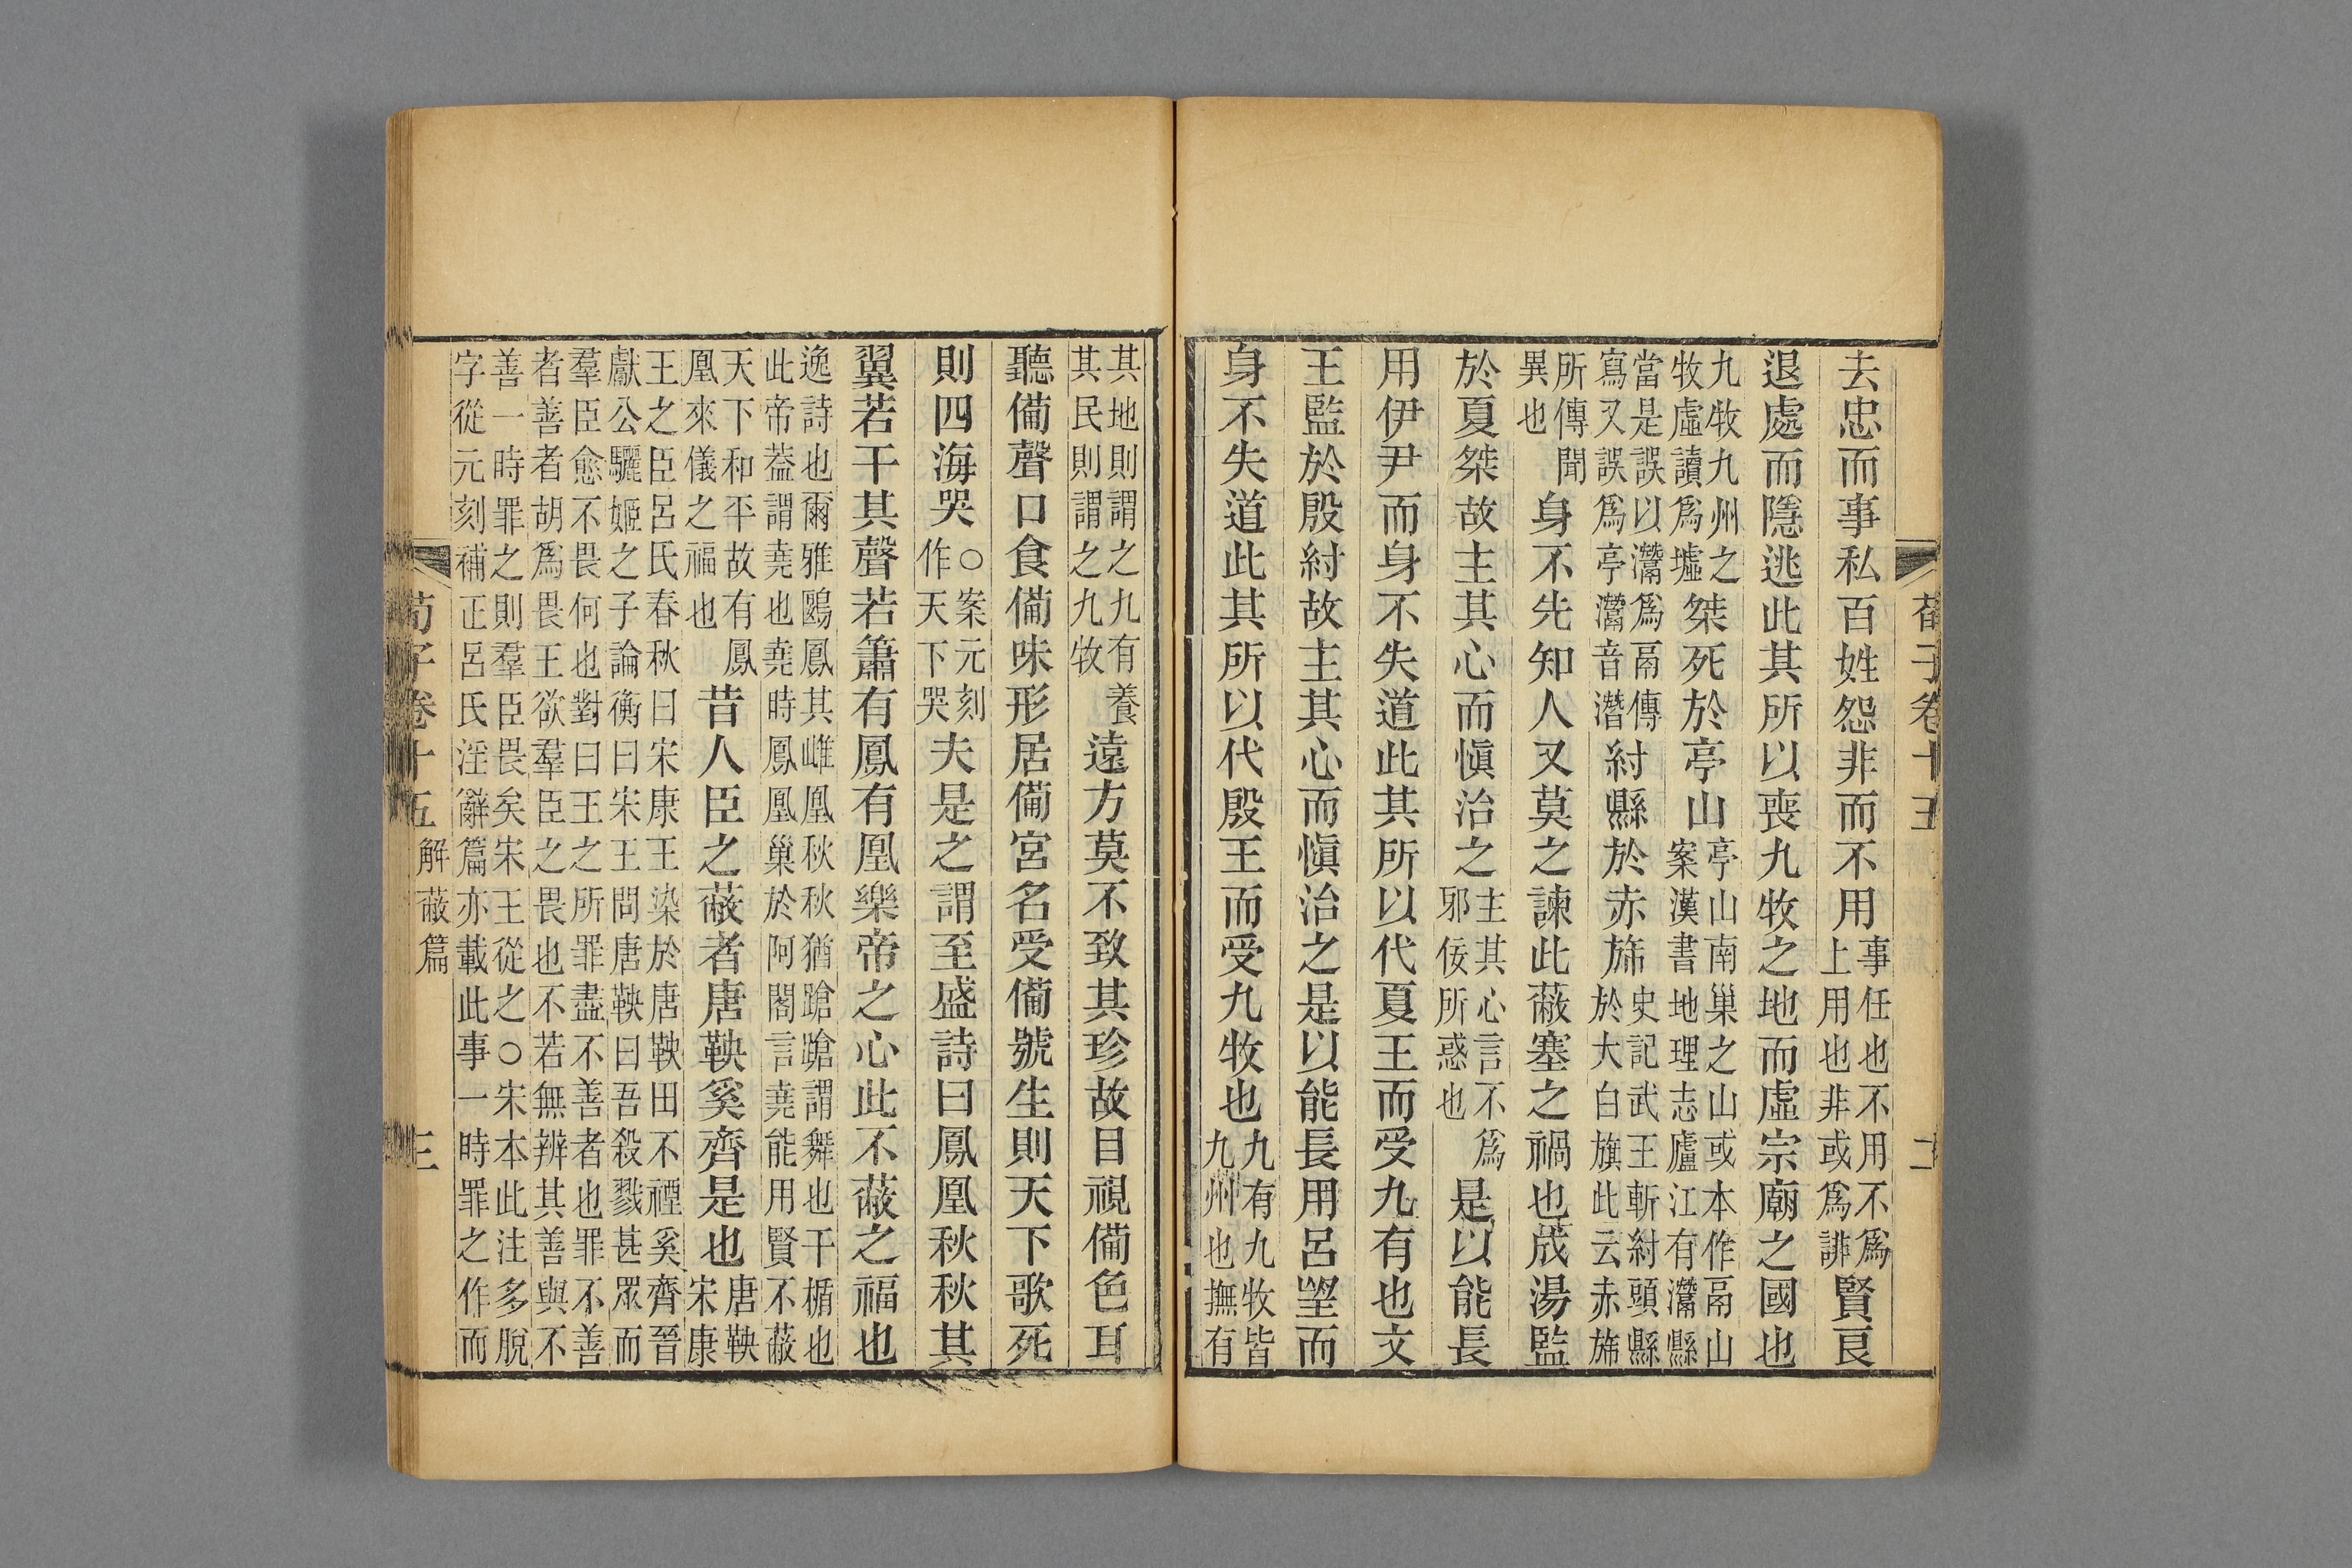 荀子卷十五
二
去忠而事私百姓怨非而不用事任也不用不爲上用也非或爲誹賢良
退處而隱逃此其所以喪九牧之地而虛宗廟之國也
九牧九州之牧虛讀爲墟桀死於亭山亭山南巢之山或本作鬲山案漢書地理志廬江有灊縣
當是誤以灊爲鬲傳寫又誤爲亭灊音潛紂縣於赤旆史記武王斬紂頭縣於大白旗此云赤旆
所傳聞異也身不先知人又莫之諫此蔽塞之禍也成湯監
於夏桀故主其心而愼治之主其心言不爲邪佞所惑也是以能長
用伊尹而身不失道此其所以代夏王而受九有也文
王監於殷紂故主其心而愼治之是以能長用呂望而
身不失道此其所以代殷王而受九牧也九有九牧皆九州也撫有
其地則謂之九有養其民則謂之九牧遠方莫不致其珍故目視備色耳
聽備聲口食備味形居備宮名受備號生則天下歌死
則四海哭○案元刻作天下哭夫是之謂至盛詩曰鳳凰秋秋其
翼若干其聲若簫有鳳有凰樂帝之心此不蔽之福也
逸詩也爾雅鶠鳳其雌凰秋秋猶蹌蹌謂舞也干楯也此帝葢謂堯也堯時鳳凰巢於阿閣言堯能用賢不蔽
天下和平故有鳳凰來儀之福也昔人臣之蔽者唐鞅奚齊是也唐鞅宋康
王之臣呂氏春秋曰宋康王染於唐鞅田不禋奚齊晉獻公驪姬之子論衡曰宋王問唐鞅曰吾殺戮甚眾而
羣臣愈不畏何也對曰王之所罪盡不善者也罪不善者善者胡爲畏王欲羣臣之畏也不若無辨其善與不
善一時罪之則羣臣畏矣宋王從之○宋本此注多脫字從元刻補正呂氏淫辭篇亦載此事一時罪之作而
荀子卷十五 解蔽篇
三